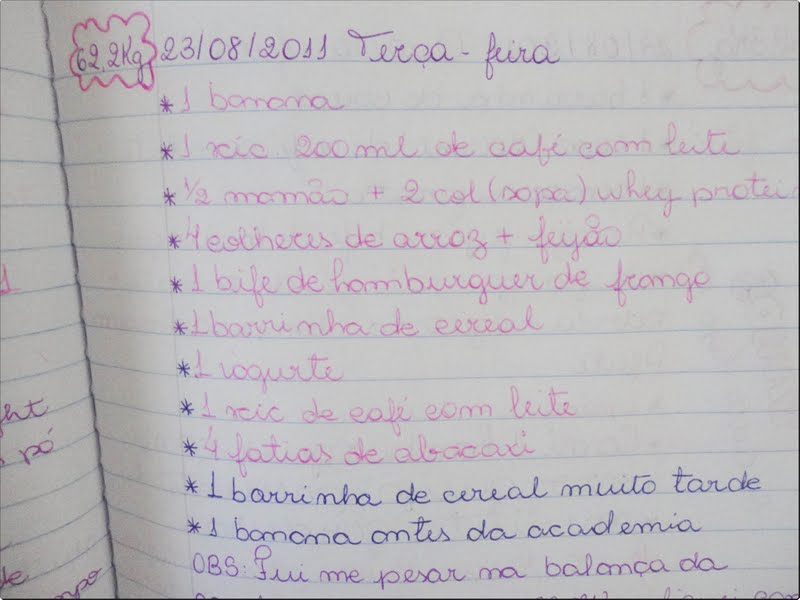 62,2Kg 23/08/2011 Terça-feira
* 1 banana
* 1 xic 200ml de café com leite
* 1/2 mamão + 2 col (sopa) whey protei
* 4 colheres de arroz + feijão
* 1 bife de hamburguer de frango
* 1 barrinha de cereal
* 1 iogurte
* 1 xic de café com leite
* 4 fatias de abacaxi
* 1 barrinha de cereal muito tarde
* 1 banana antes da academia
OBS: Fui me pesar na balança da
1
ht
pó